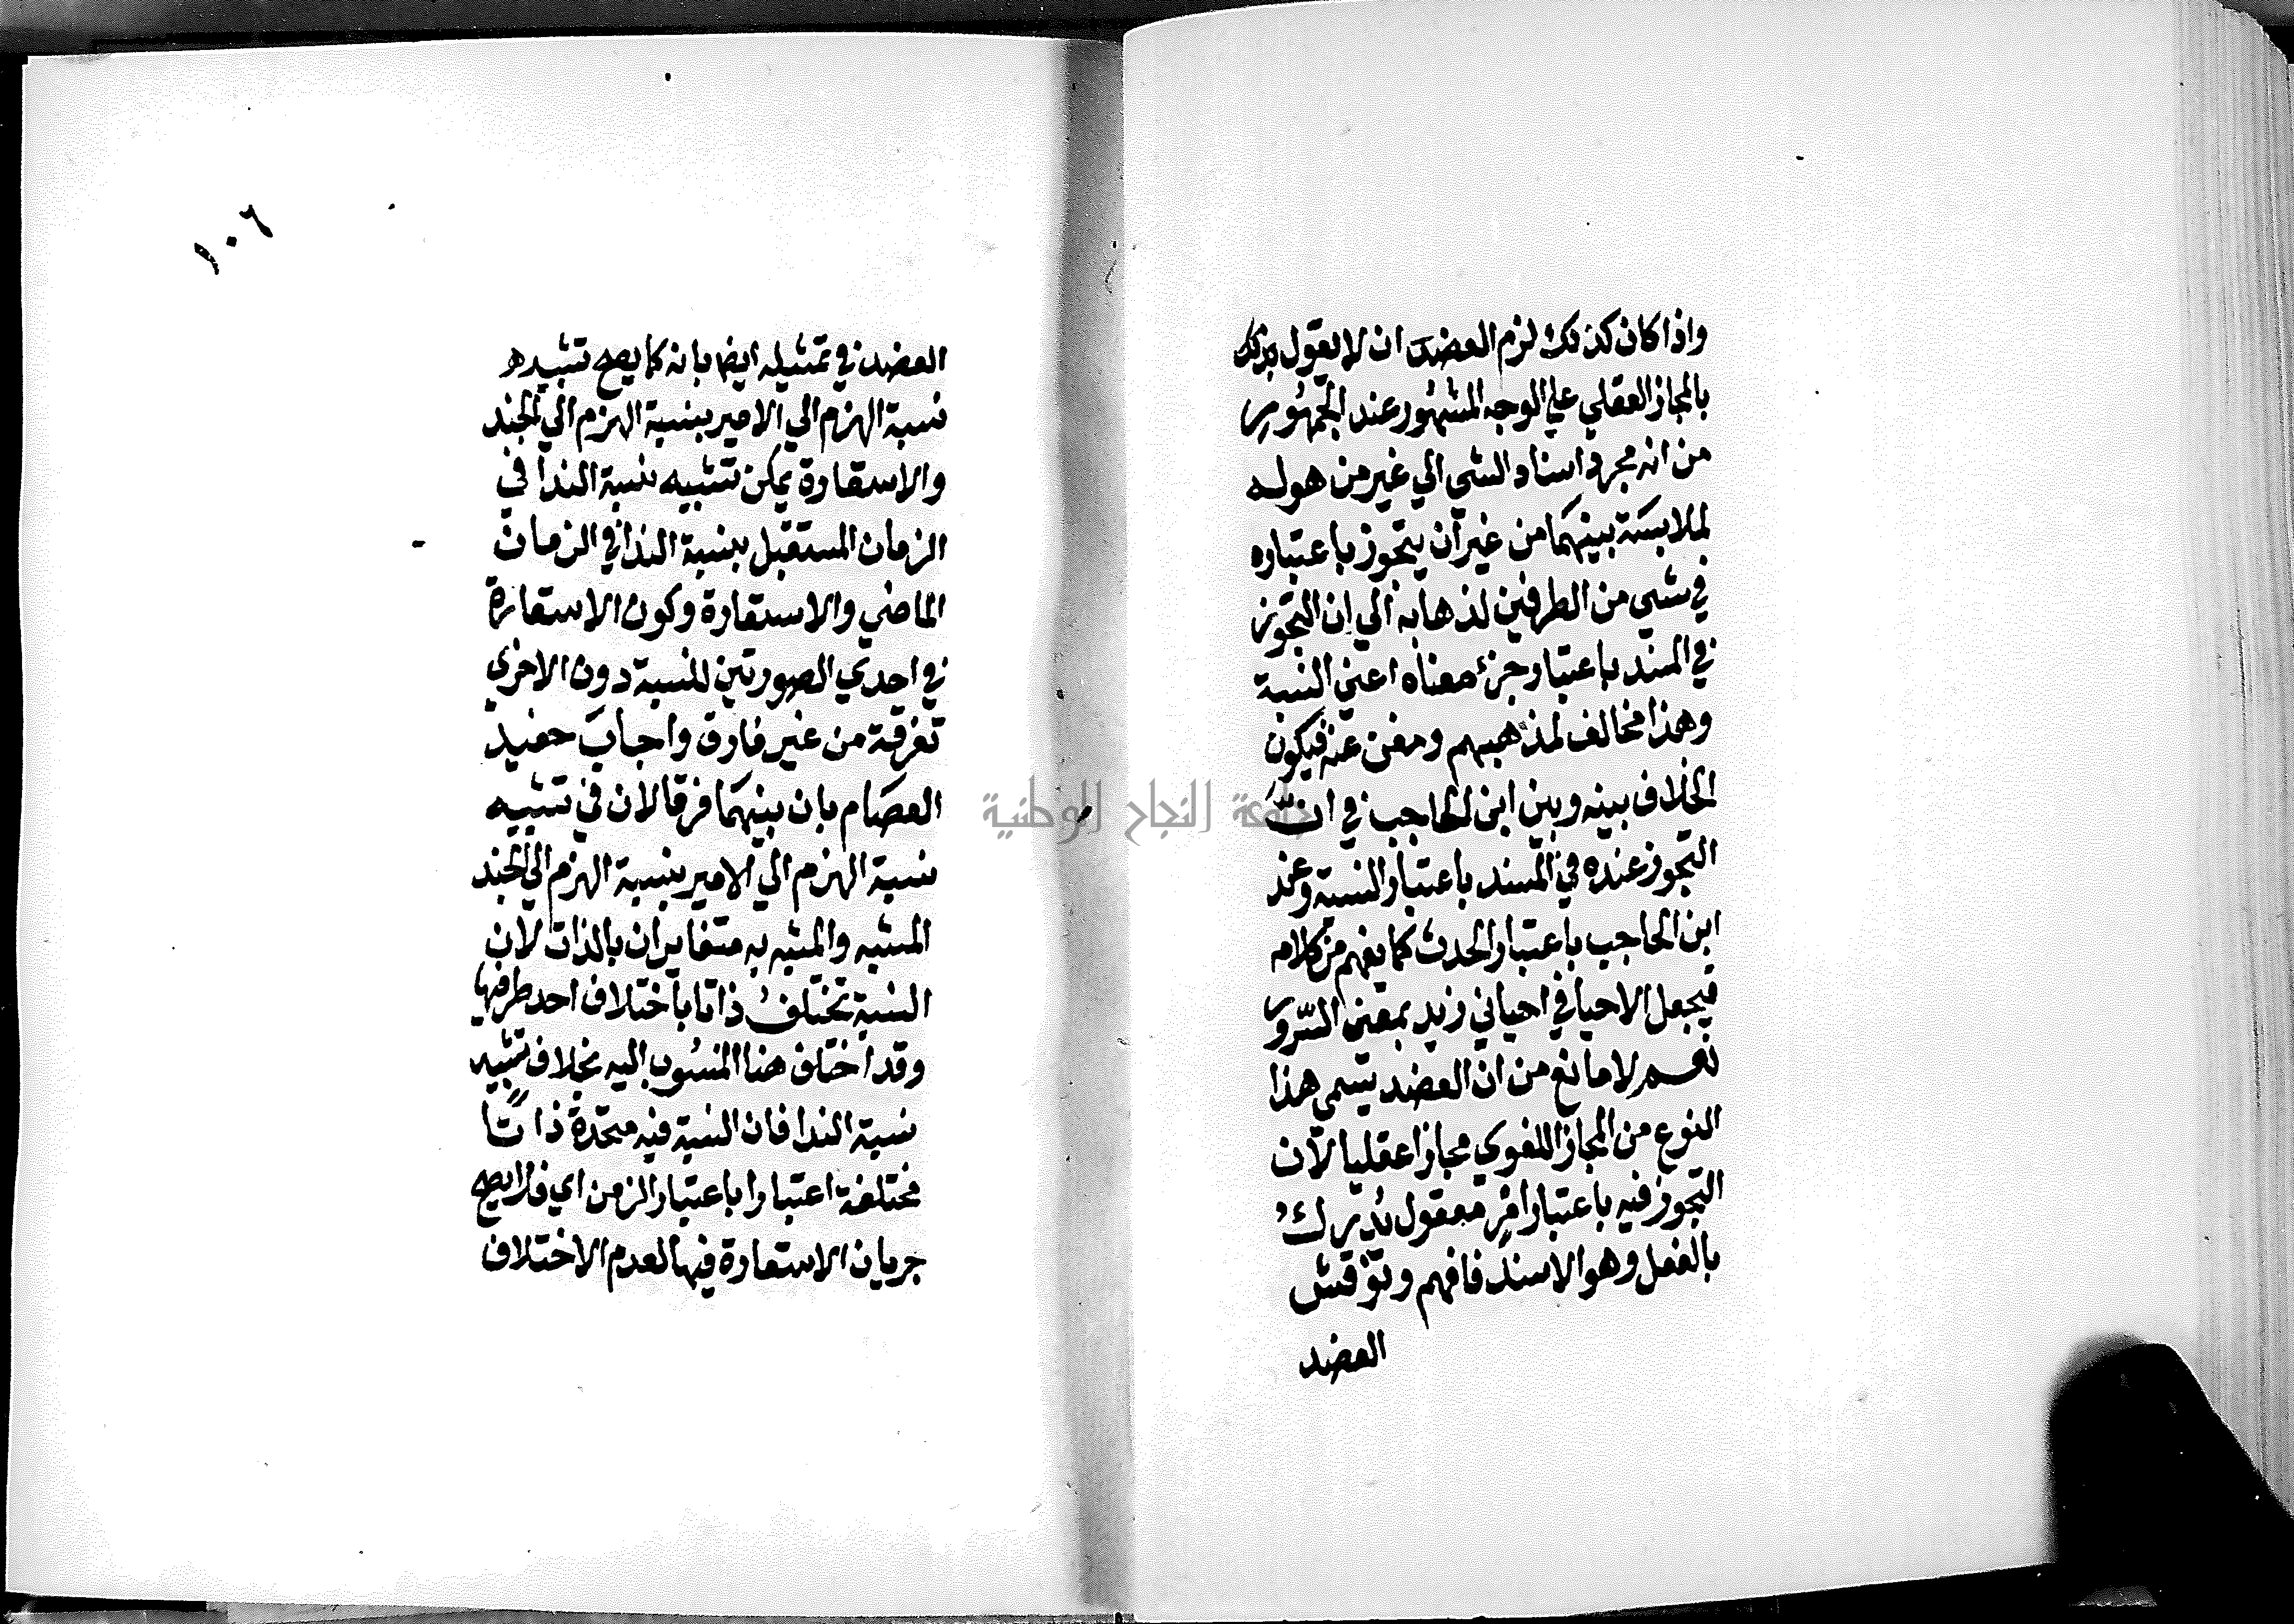 واذا كان كذلك لزم العضد ان لا يقول بذلك
بالمجاز العقلي علي الوجه المشهور عند الجمهور
من انه مجرد اسناد الشي الي غير من هوله
لملابسة بينهما من غير ان يتجوز باعتباره
في شي من الطرفين لذهابه الي ان التجوز
في المسند باعتبار جزء معناه اعني النسبة
وهذا مخالف لمذهبهم ومغن عنه فيكون
الخلاف بينه وبين ابن الحاجب في انّ
التجوز عنده في المسند باعتبار النسبة وعند
ابن الحاجب باعتبار الحدث كما يفهم من كلامه
فيجعل الاحيا في احياني زيد بمعنى السّرور
نعم لا مانع من ان العضد يسمي هذا
النوع من المجاز اللغوي مجازا عقليا لان
التجوز فيه باعتبار امر معقول يُدرك
بالعقل وهو الاسناد فافهم ونوقش
العضد
١٠٦
العضد في تمثيله ايضا بانه كما يصح تشبيه
نسبة الهزم الي الامير بنسبة الهزم الي الجند
والاستعارة يمكن تشبيه نسبة الندا في
الزمان المستقبل بنسبة الندا في الزمان
الماضي والاستعارة وكون الاستعارة
في احدي الصورتين للنسبة دون الاخري
تفرقة من غير فارق واجاب حفيد
العصام بان بينهما فرقا لان في تشبيه
نسبة الهزم الي الامير بنسبة الهزم الي الجند
المشبه والمشبه به متغايران بالذات لان
النسبة تختلف ذاتا باختلاف احد طرفيها
وقد اختلف هنا المنسوب اليه بخلاف تشبيه
نسبة الندا فان النسبة فيه متحدة ذاتا
مختلفة اعتبارا باعتبار الزمن اي فلا يصح
جريان الاستعارة فيها لعدم الاختلاف
جامعة النجاح الوطنية